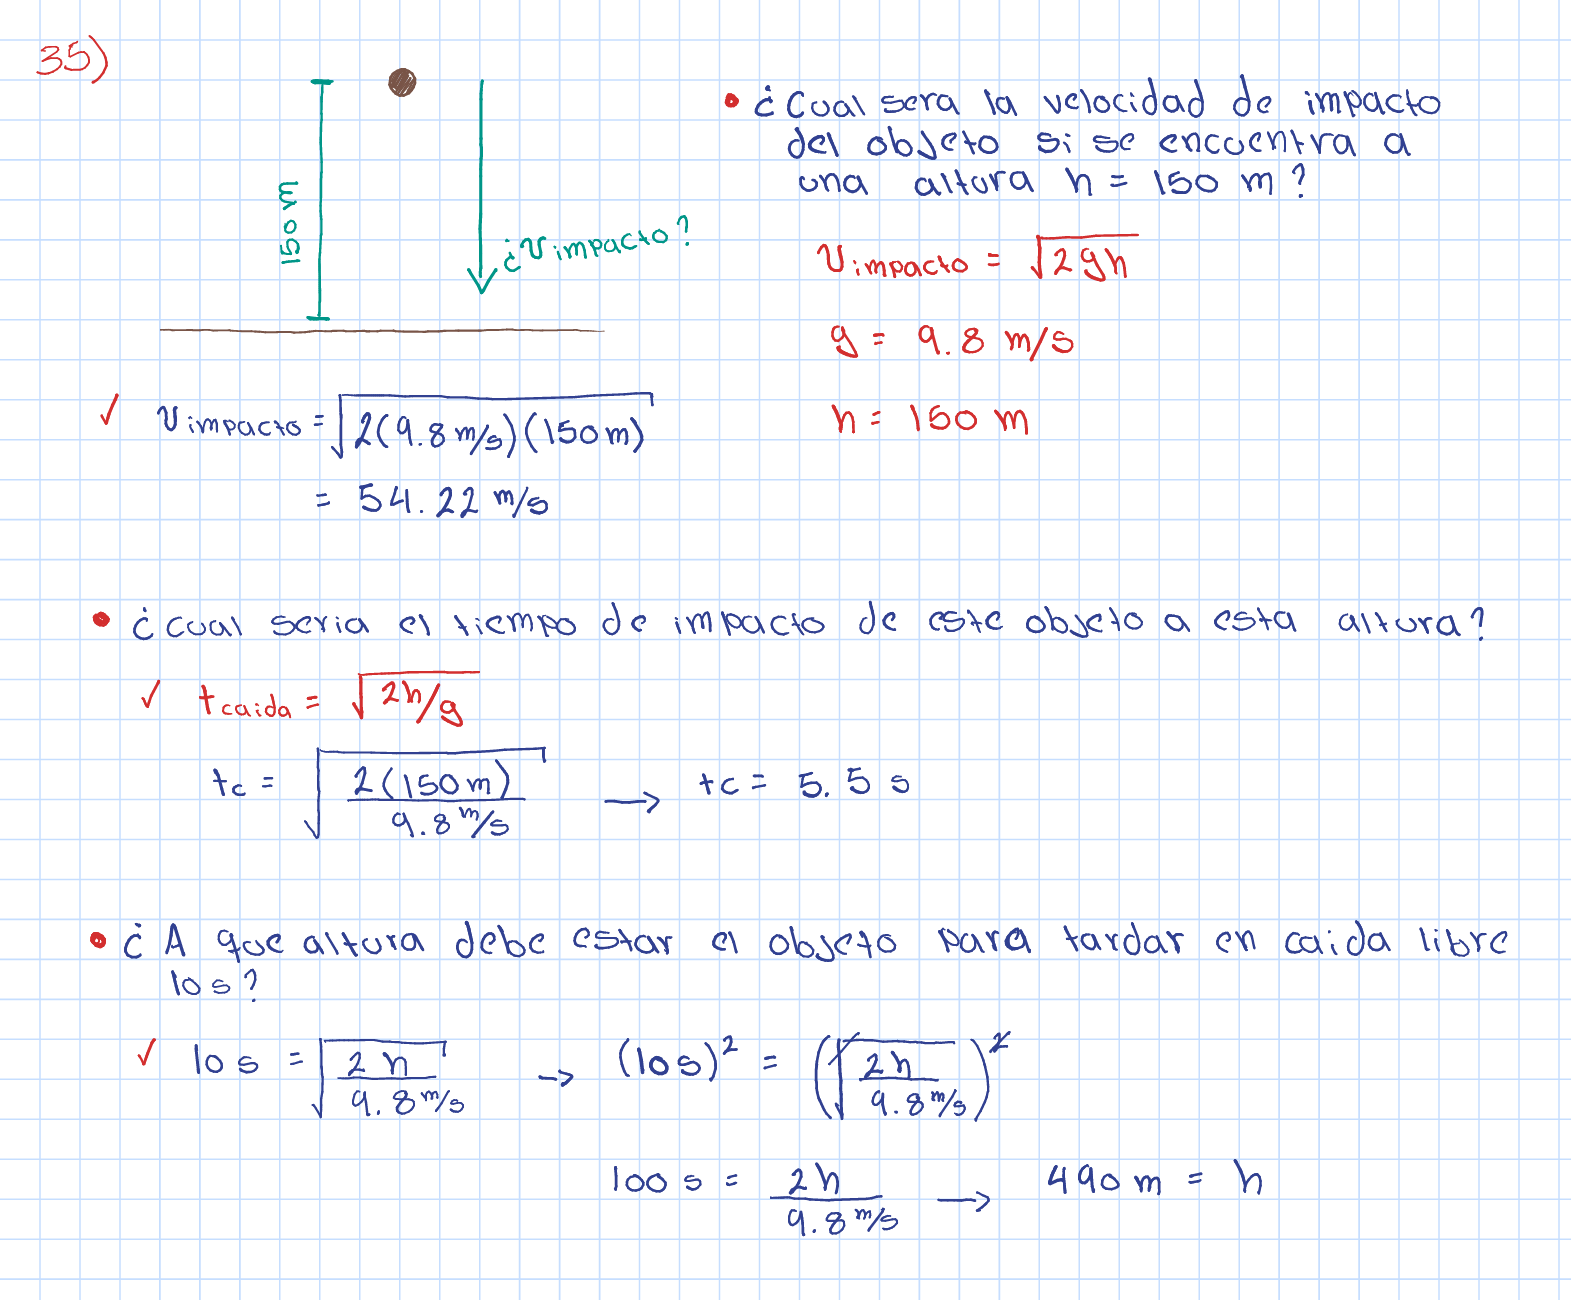 35)
150 m
¿v impacto?
• ¿Cual sera la velocidad de impacto
del objeto si se encuentra a
una altura h = 150 m?
v impacto = √2gh
g = 9.8 m/s
h = 150 m
✓ v impacto = √2(9.8 m/s)(150 m)
= 54.22 m/s
• ¿cual seria el tiempo de impacto de este objeto a esta altura?
✓ t caida = √2h/g
tc = √2(150 m)/9.8 m/s → tc = 5.5 s
• ¿A que altura debe estar el objeto para tardar en caida libre
10 s?
✓ 10 s = √2h/9.8 m/s → (10 s)² = (√2h/9.8 m/s)²
100 s = 2h/9.8 m/s → 490 m = h